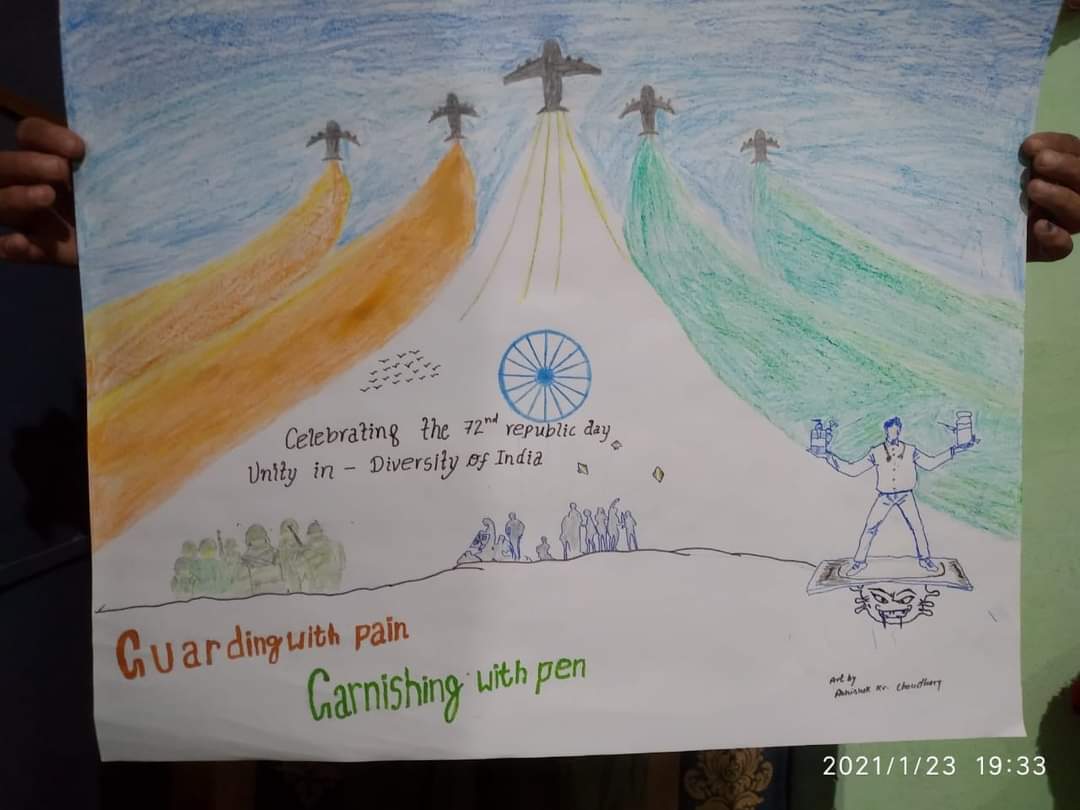 Celebrating the 72nd republic day
Unity in - Diversity of India
Guarding with pain
Garnishing with pen
Art by
Abhishek Kr. Choudhary
2021/1/23 19:33